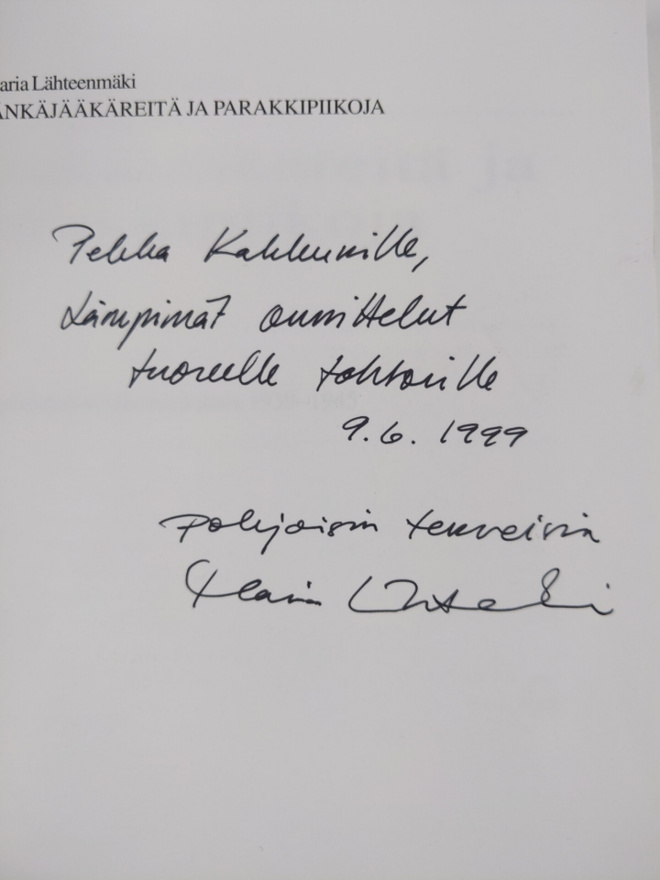 aria Lähteenmäki
ÄNKÄJÄÄKÄREITÄ JA PARAKKIPIIKOJA
Pekka Kakkurille,
Lämpimät onnittelut
tuoreelle tohtorille
9.6. 1999
pohjoisin terveisin